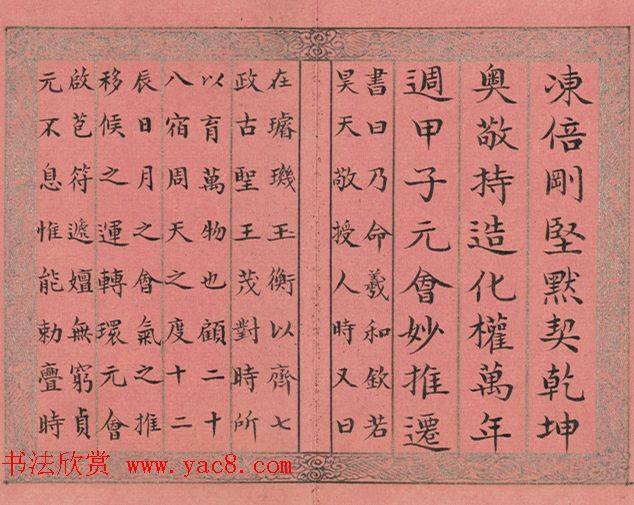 凍倍剛堅默契乾坤
奧敬持造化權萬年
週甲子元會妙推遷
書曰乃命羲和欽若
昊天敬授人時又曰
在璿璣玉衡以齊七
政古聖王茂對時所
以育萬物也顧二十
八宿周天之度十二
辰日月之會氣之推
移候之運轉環元會
啟苞符遞嬗無窮貞
元不息惟能勅亹時
书法欣赏 www.yac8.com